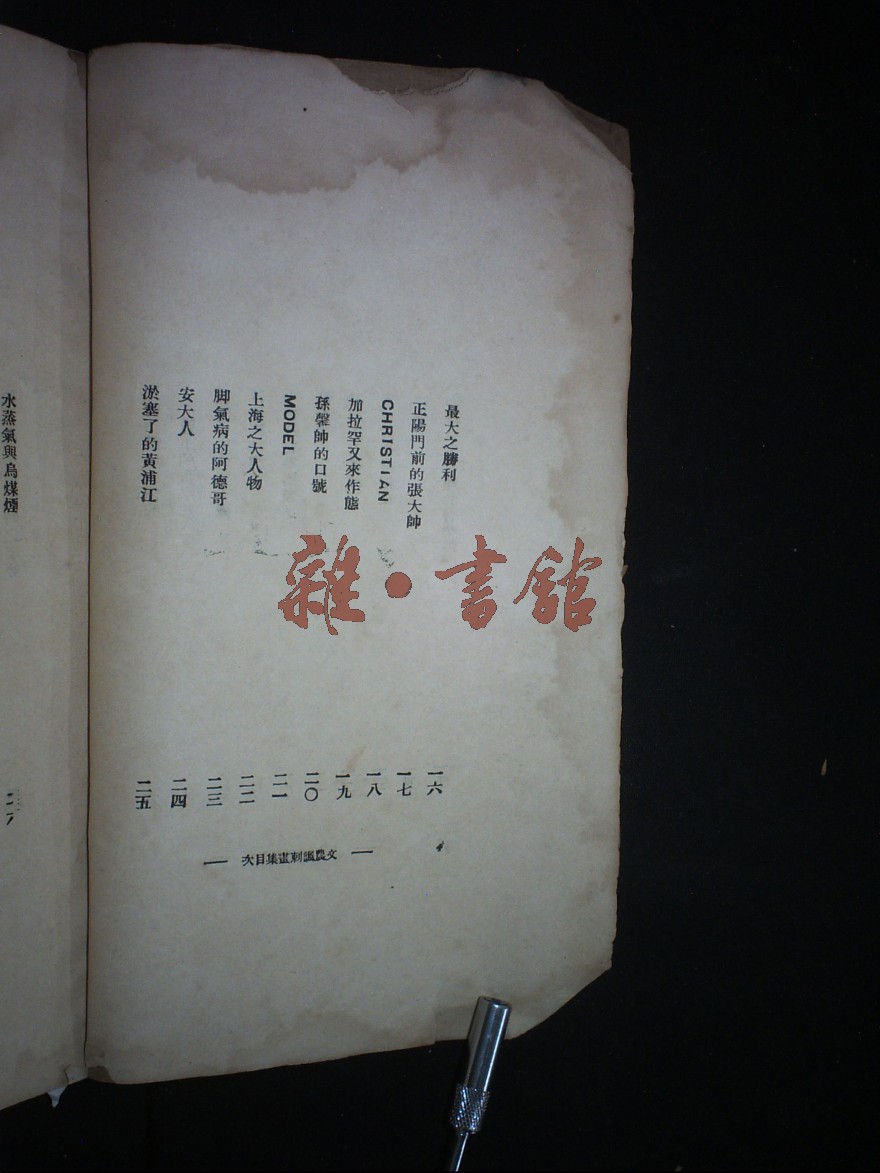 最大之勝利 一六
正陽門前的張大帥 一七
CHRISTIAN 一八
加拉罕又來作態 一九
孫馨帥的口號 二〇
MODEL 二一
上海之大人物 二二
脚氣病的阿德哥 二三
安大人 二四
淤塞了的黃浦江 二五
文農諷刺畫集目次
水蒸氣與烏煤煙
雜·書館